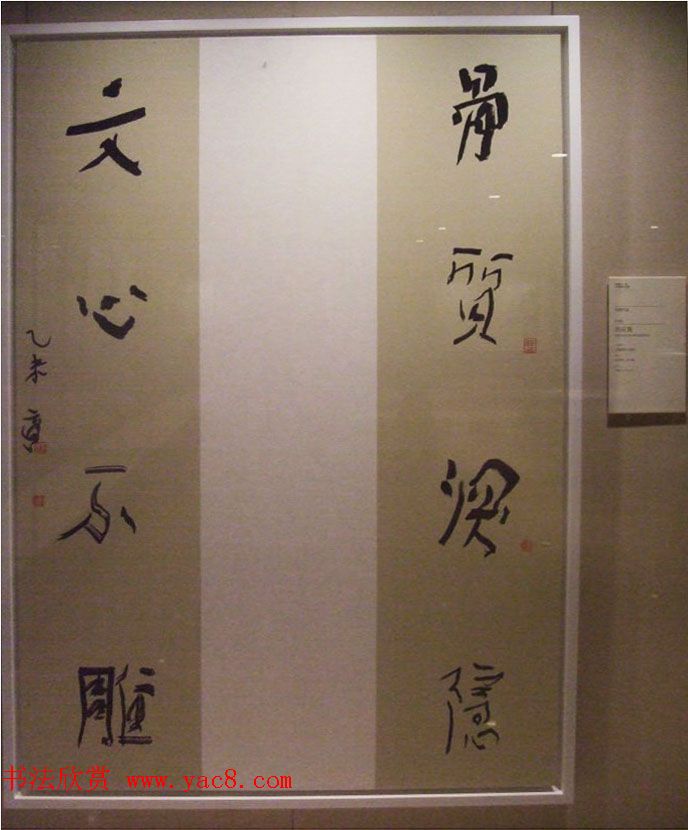 骨質深隱
文心不雕
乙未
书法欣赏 www.yac8.com